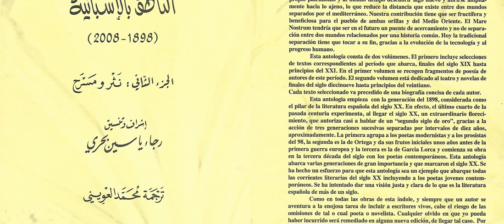 الناطق بالإسبانية
(2008-1898)
الجزء الثاني: نثر ومسرح
إشراف وتحسين
رجاء ياسين بحري
ترجمة محمد العويني
hacia lo ajeno, lo que reduce la distancia que existe entre dos mundos
separados por el mediterráneo. Nuestra contribución tiene que ser fructífera y
beneficiosa para el pueblo de ambas orillas y del Medio Oriente. El Mare
Nostrum tendría que ser en el futuro un puente de acercamiento y no de separa-
ción entre dos mundos relacionados por una historia común. Hoy la tradicional
separación tiene que tocar a su fin, gracias a la evolución de la tecnología y al
progreso humano.
Esta antología consta de dos volúmenes. El primero incluye selecciones
de textos correspondientes al periodo que abarca, finales del siglo XIX hasta
principios del XXI. En el primer volumen se recogen fragmentos de poesía de
autores de este período. El segundo volumen está dedicado al teatro y novelas de
finales del siglo diecinueve hasta principios del veintiano.
Cada texto seleccionado va precedido de una biografía concisa de cada autor.
Esta antología empieza con la generación del 1898, considerada como
el pilar de la literatura española del siglo XX. En efecto, el último cuarto de la
pasada centuria experimenta, al llegar el siglo XX, un extraordinario floreci-
miento, que autoriza casi a hablar de un "segundo siglo de oro", gracias a la
acción de tres generaciones sucesivas separadas por intervalos de diez años,
aproximadamente. La primera agrupa a los poetas modernistas y a los prosistas
del 98, la segunda es la de Ortega y da sus frutos iniciales unos años antes de la
primera guerra europea y la tercera es la de García Lorca y comienza su obra
en la tercera década del siglo con los poetas contemporáneos. Esta antología
abarca varias generaciones de gran importancia y que marcaron el siglo XX. Se
ha hecho un esfuerzo para que esta antología sea un ejemplo que abarque todas
las corrientes literarias del siglo XX incluyendo a los poetas jóvenes contem-
poráneos. Se ha intentado dar una visión justa y clara de lo que es la literatura
española de más de un siglo.
Como en todas las obras de esta índole, y siempre que un autor se
aventura a la enojosa tarea de incluir a escritores vivos, cabe el riesgo de las
omisiones de tal o cual poeta o novelista. Cualquier olvido en que yo pueda
haber incurrido será remediado en alguna nueva edición, de llegar tal caso. Por